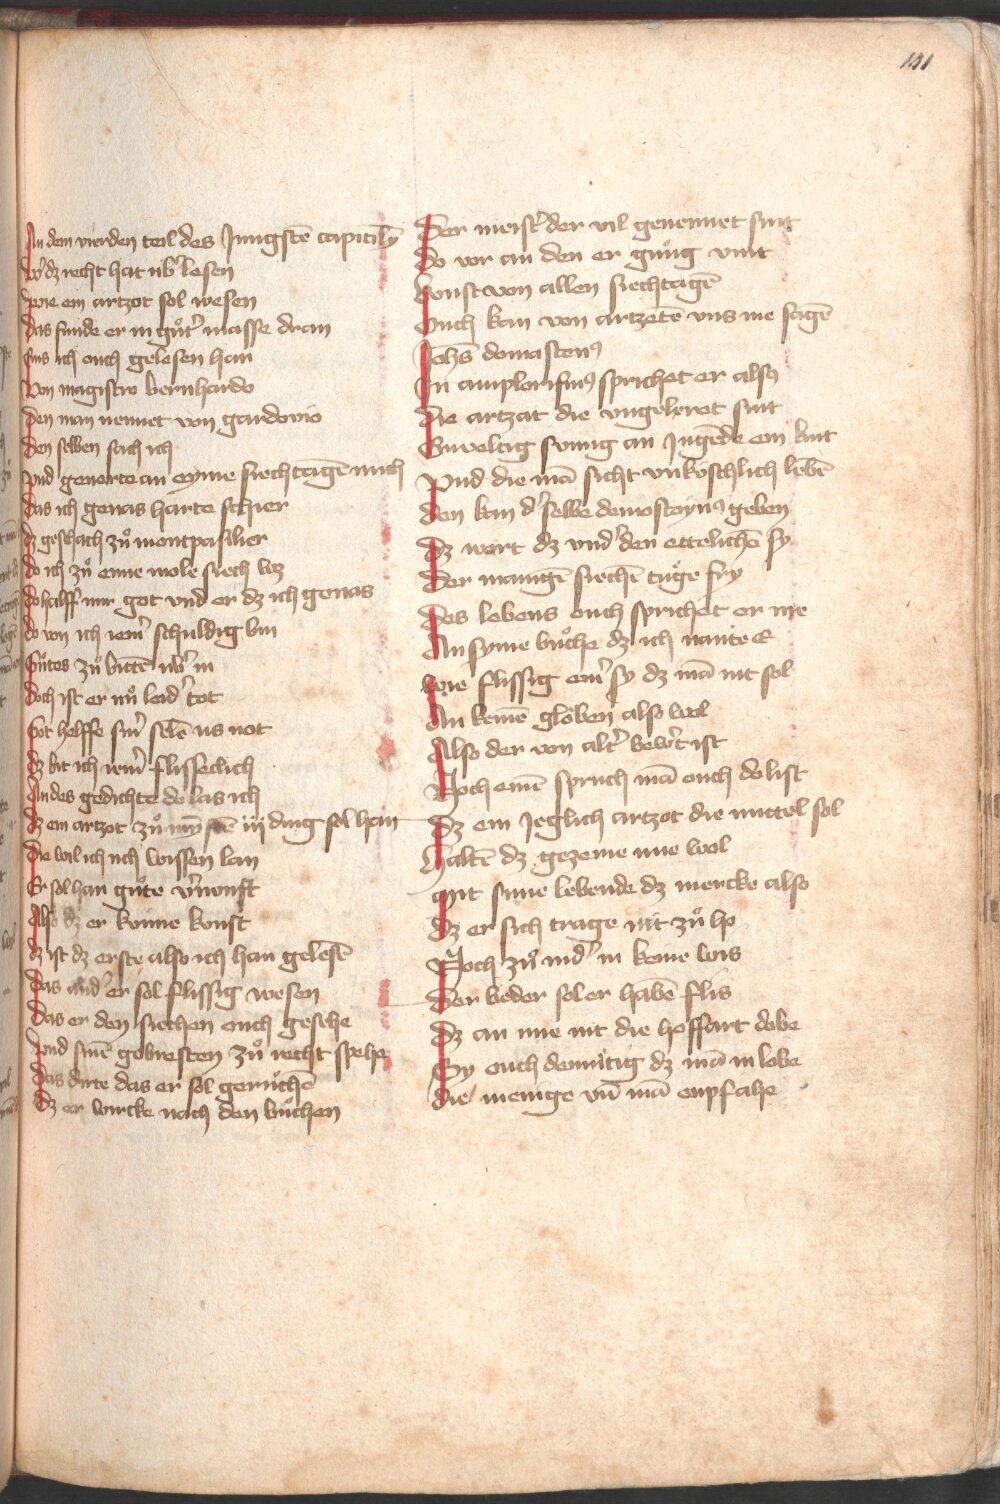 141
An dem vierden teil des Jungstē capitily
wʾ dz recht hat ubʾ lesen
wie ein artzot sol wesen
das funde er in gůtʾ masse dran
Eins ich ouch gelesen han
Von magistro bernhardo
Den man nennet von gardonio
Den selben sach ich
Vnd generte an eyme siechtagē mich
Das ich genas harte schier
Dz geschach zů montpasilier
Do ich zů eime mole siech wz
do halff mir got vnd er dz ich genas
do von ich iemʾ schuldig bin
Gůtes zů bittē ubʾ in
Doch ist er nů leidʾ tot
Got helffe sinʾ selē us not
Dz bit ich iemʾ flisseclich
An des gedichte do las ich
Dz ein artzot zů iij ding sol han
Die wil ich uch wissen lan
Er sol han gůte vʾnunft
Also dz er kunne konst
Dz ist dz erste also ich han gelesē
Das andʾ er sol flissig wesen
Das er den siechen ouch gesehe
Vnd sinē gebresten zů recht spehe
Das dirte das er sol gerůchē
Dz er wircke nach den bůchen
Der meistʾ der vil genennet sint
Do vor an den er gnůg vint
Konst von allen siechtagē
Ouch kan von artzetē vns me sagē
Johēs domastenꝰ
In amplorismꝰ sprichet er alsꝰ
Die artzat die ungeleret sint
Einveltig sinnig an Jugēde ein kint
Vnd die mā sicht unkoschlich lebē
Den kan dʾ selbe demosteynꝰ geben
Dz wort dz vndʾ den ettelichē sy
Der manigē siechē tůge fry
Des lebens ouch sprichet er me
An syme bůche dz ich nante E
wie flissig einʾ sy dz mā nit sol
An keinē glöben also wol
Also der von altʾ bewʾt ist
Noch einē spruch mā ouch do list
Dz ein Jeglich artzot die mittel sol
Haltē dz gezeme ime wol
Mit sime lebende dz mercke also
Dz er sich trage nit zů ho
Noch zů nidʾ in keine wis
Der beder sol er habē flis
Dz an ime nit die hoffart dobe
Sy ouch demůtig dz mā in lobe
Die menige vn̄ mā enpfahe